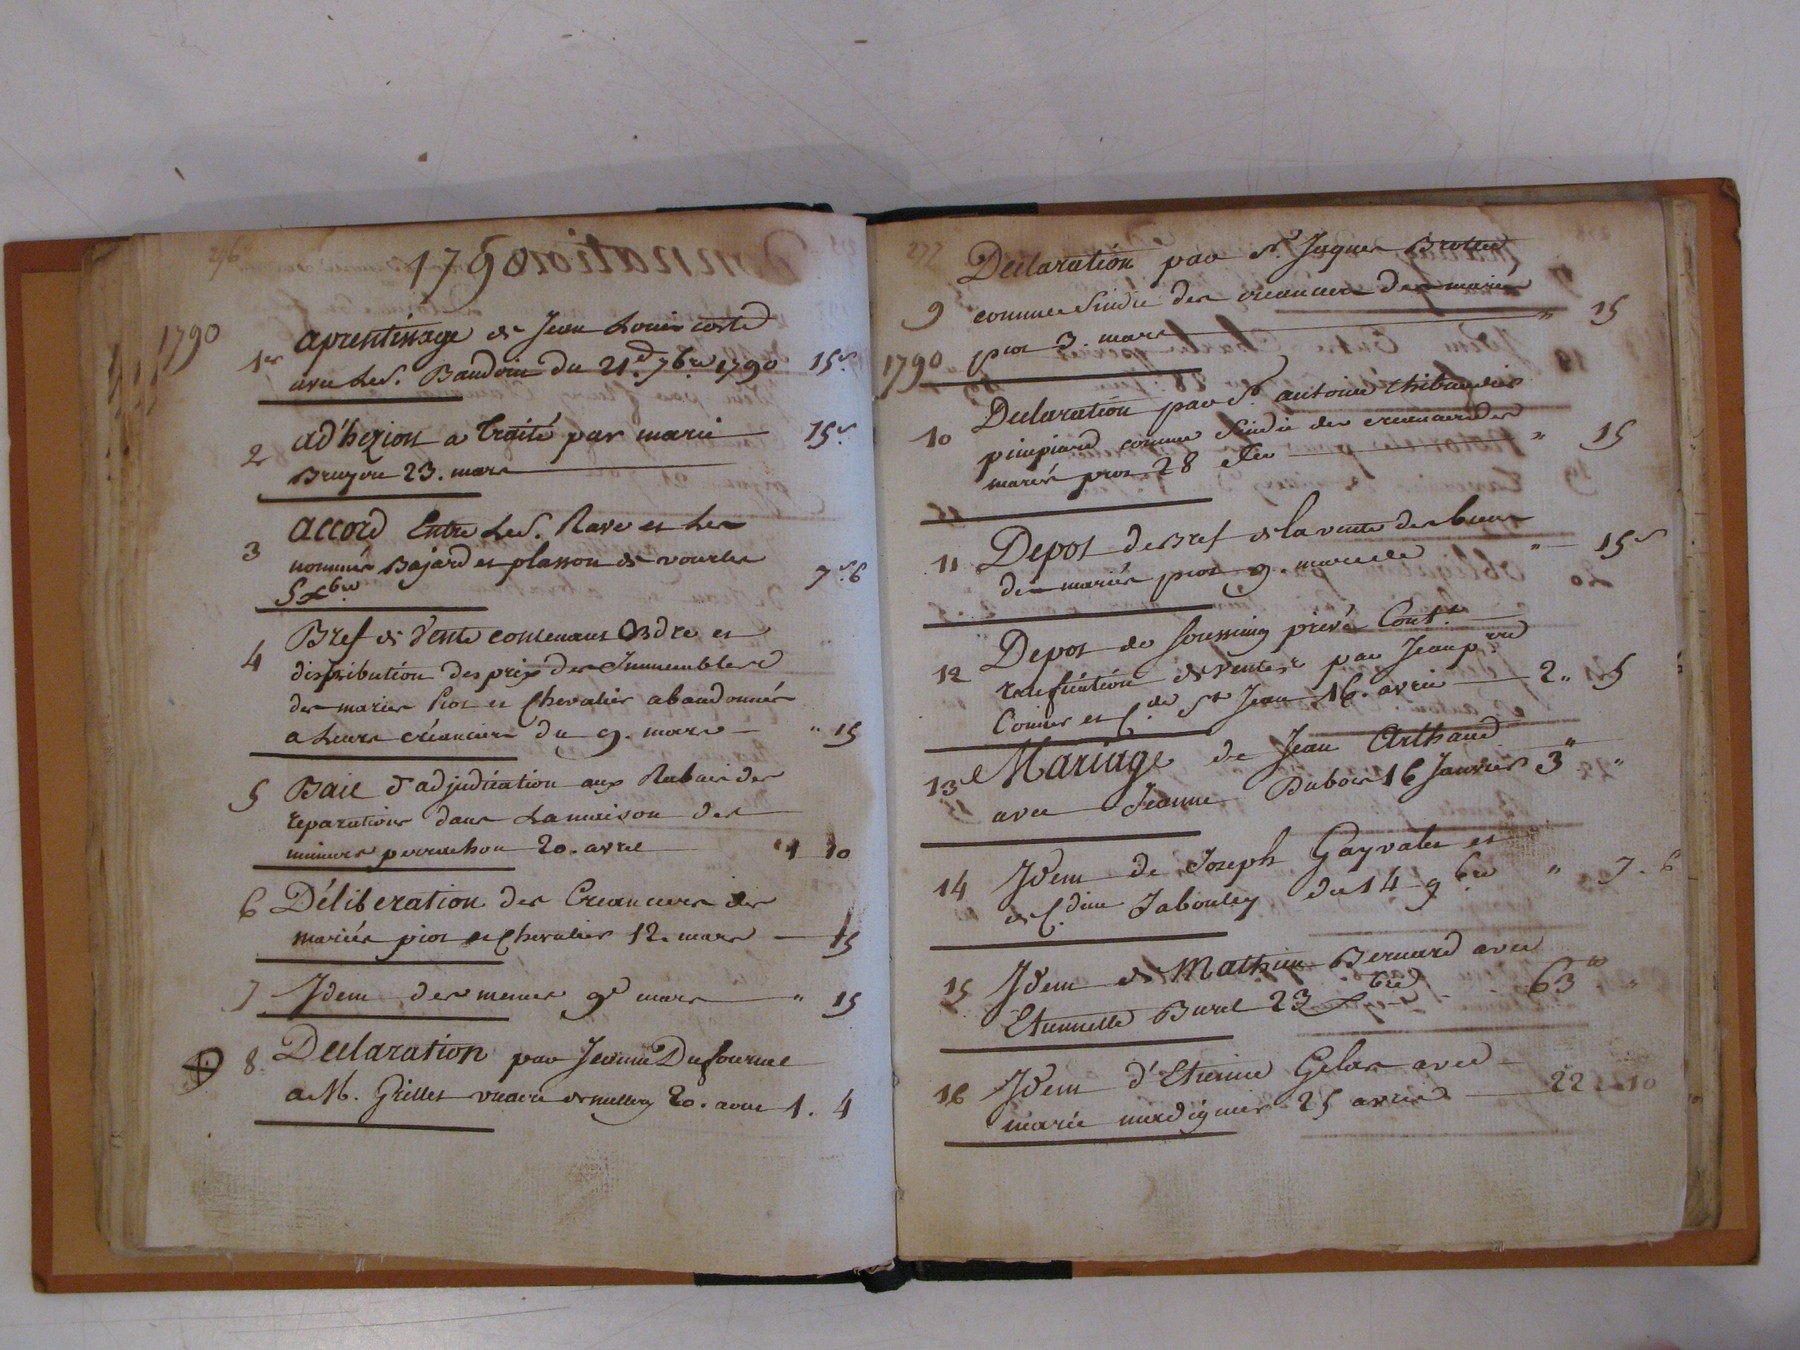 276
1790
1790
1er aprentissage de Jean Louis coste
avec Le S. Baudoin du 21.d 7bre 1790 15s.
2 ad'hezion a traité par marie
Bruyon 23. mars 15s.
3 accord Entre Le S. Rave et Les
nommés Bajard et plasson de vourles
5 xbre 7s.6
4 Bref de Vente contenant Ordre et
distribution des prix des Immeubles
des mariés Piot et Chevalier abandonnés
a Leurs créanciers du 9. mars " 15
5 Bail d'adjudication aux Rabais des
reparations dans La maison des
mineurs perrachon 20. avril 1 10
6 Déliberation des Creanciers des
mariés piot et Chevalier 12. mars 15
7 Idem des memes 9e mars " 15
8 Declaration par Jeanne Dufournel
a M. Grillet vicaire de millery 20. aout 1. 4
277
Declaration par Sr. Jaques
9 comme Sindic des creanciers des mariés
piot 3. mars " 15
1790
Declaration par Sr. antoine thibaudier
10 comme Sindic des creanciers des
mariés piot 28 " 15
11 Depot de Bref de la vente des biens
des mariés piot 9. mars " 15s
12 Depot de soussing privé Cont.t
ratification de vente par Jean p.rre
et C.de St Jean 16. avril 2" 5
13 Mariage de Jean Arthaud
avec Jeanne Dubois 16 Janvier 3" "
14 Idem de Joseph Gayvalet et
de C.dine Tabouley du 14 9bre " 7. 6
15 Idem de Mathieu Bernard avec
Etiennette Burel 23 xbre 63 "
16 Idem d'Etienne Gelas avec
marie murdigues 25 avril 22 10